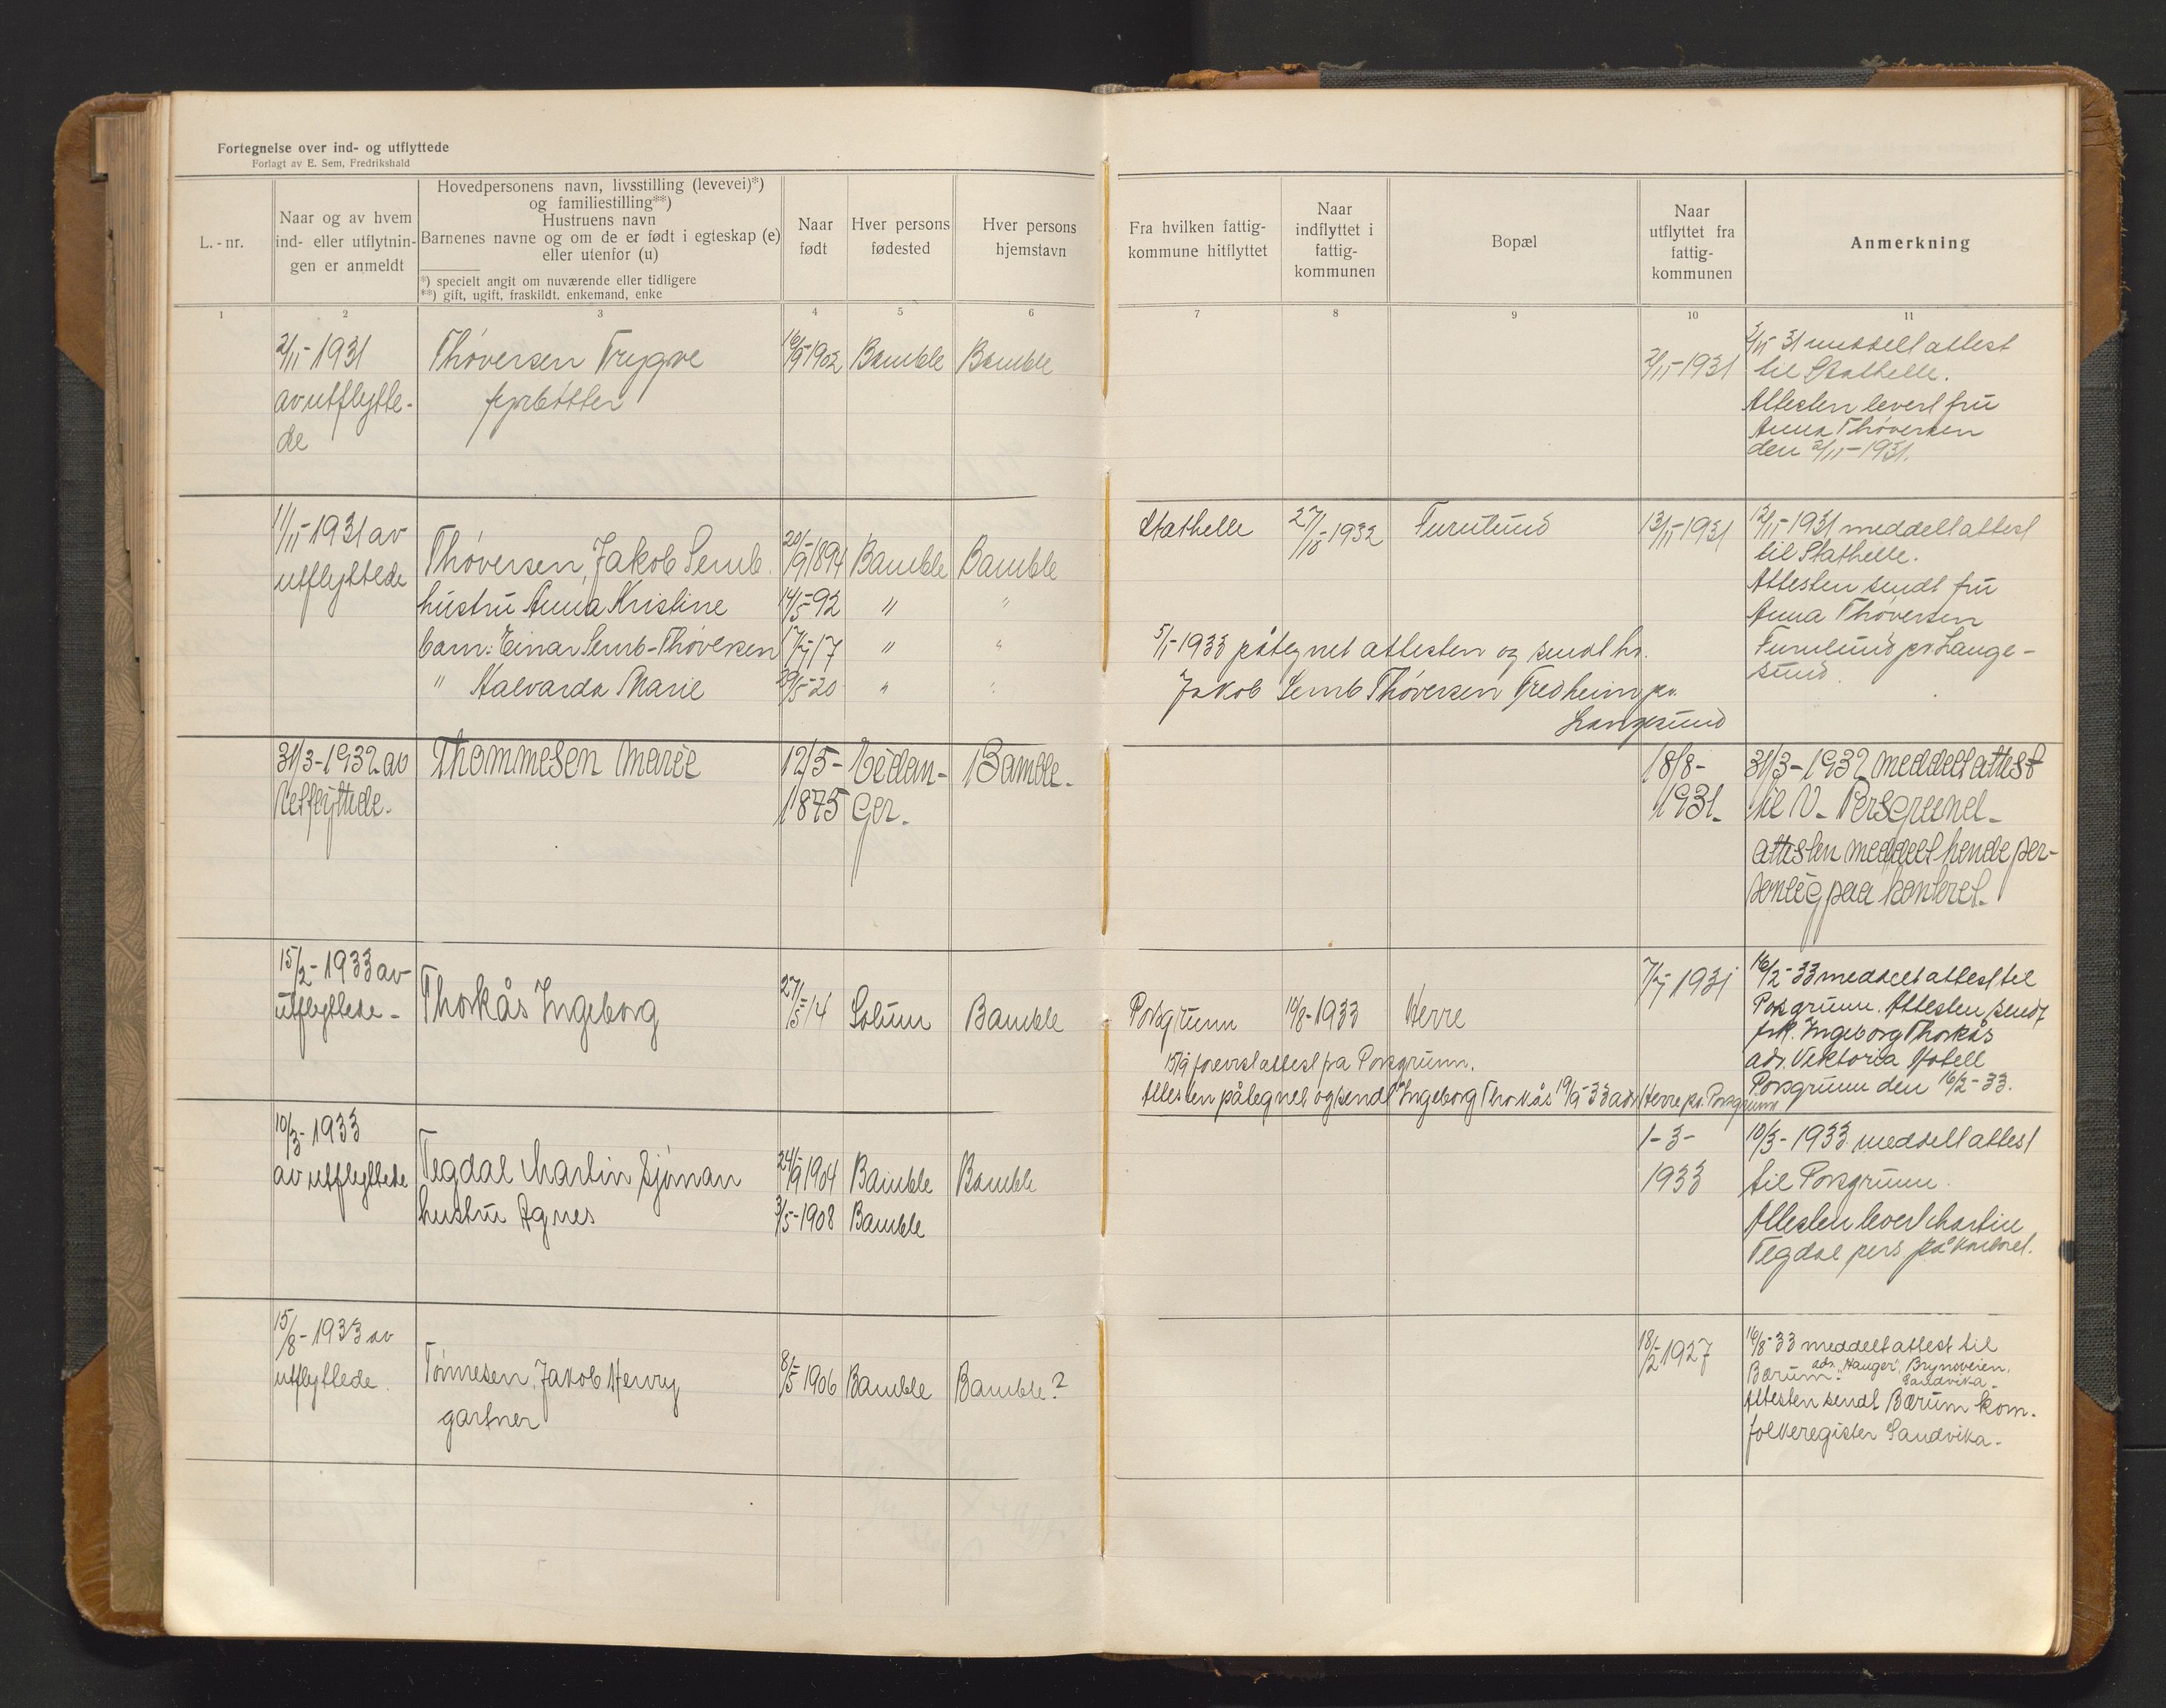 Fortegnelse over ind- og utflyttede
Forlagt av E. Sem, Fredrikshald
L.-nr.
Naar og av hvem
ind- eller utflytnin-
gen er anmeldt
Hovedpersonens navn, livsstilling (levevei)*)
og familiestilling**)
Hustruens navn
Barnenes navne og om de er født i egteskap (e)
eller utenfor (u)
*) specielt angit om nuværende eller tidligere
**) gift, ugift, fraskildt. enkemand, enke
Naar
født
Hver persons
fødested
Hver persons
hjemstavn
Fra hvilken fattig-
kommune hitflyttet
Naar
indflyttet i
fattig-
kommunen
Bopæl
Naar
utflyttet fra
fattig-
kommunen
Anmerkning
1 2 3 4 5 6 7 8 9 10 11
2/11-1931
av utflytte-
de
Thøversen Trygve
fyrbøtter
16/9-1902
Bamble
Bamble
2/11-1931
3/11-31 meddelt attest
til Stathelle.
Attesten levert fru
Anna Thøversen
den 3/11-1931.
11/11-1931 av
utflyttede
Thøversen, Jakob Semb. 20/9-1894 Bamble Bamble
hustru Anna Kristine 14/5-92 " "
barn: Einar Semb-Thøversen 17/7-17 " "
" Halvarda Marie 29/5-20 " "
Stathelle
27/10-1932
Furulund
13/11-1931
5/1-1933 påtegnet attesten og sendt hr.
Jakob Semb Thøversen Fredheim pr.
Langesund
12/11-1931 meddelt attest
til Stathelle.
Attesten sendt fru
Anna Thøversen
Furulund pr. Lange-
sund.
31/3-1932 av
Utflyttede.
Thommesen Marie
12/5-
1875
Eidan-
ger.
Bamble.
18/8-
1931.
31/3-1932 meddelt attest
til V. Porsgrund.
attesten meddelt hende per-
sonlig paa kontoret.
15/2-1933 av
utflyttede-
Thorkås Ingeborg
27/5-14
Solum
Bamble
Porsgrunn
-1933
Herre
15/9 forevist attest fra Porsgrunn.
Attesten påtegnet og sendt Ingeborg Thorkås 19/9-33 adr. Herre pr. Porsgrunn
7/7-1931
16/2-33 meddelt attest til
Porsgrunn. Attesten sendt
frk. Ingeborg Thorkås
adr. Viktoria Hotell
Porsgrunn den 16/2-33.
10/3-1933
av utflyttede
Tegdal Martin sjøman 24/9-1904 Bamble Bamble
hustru Agnes 3/5-1908 Bamble
1-3-
1933
10/3-1933 meddelt attest
til Porsgrunn.
Attesten levert Martin
Tegdal pers på kontoret.
15/8-1933 av
utflyttede.
Tønnesen, Jakob Henry
gartner
8/5-1906
Bamble
Bamble?
18/2-1927
16/8-33 meddelt attest til
Bærum. adr. "Hauger", Brynsveien,
Sandvika.
Attesten sendt Bærum kom.
folkeregister Sandvika.